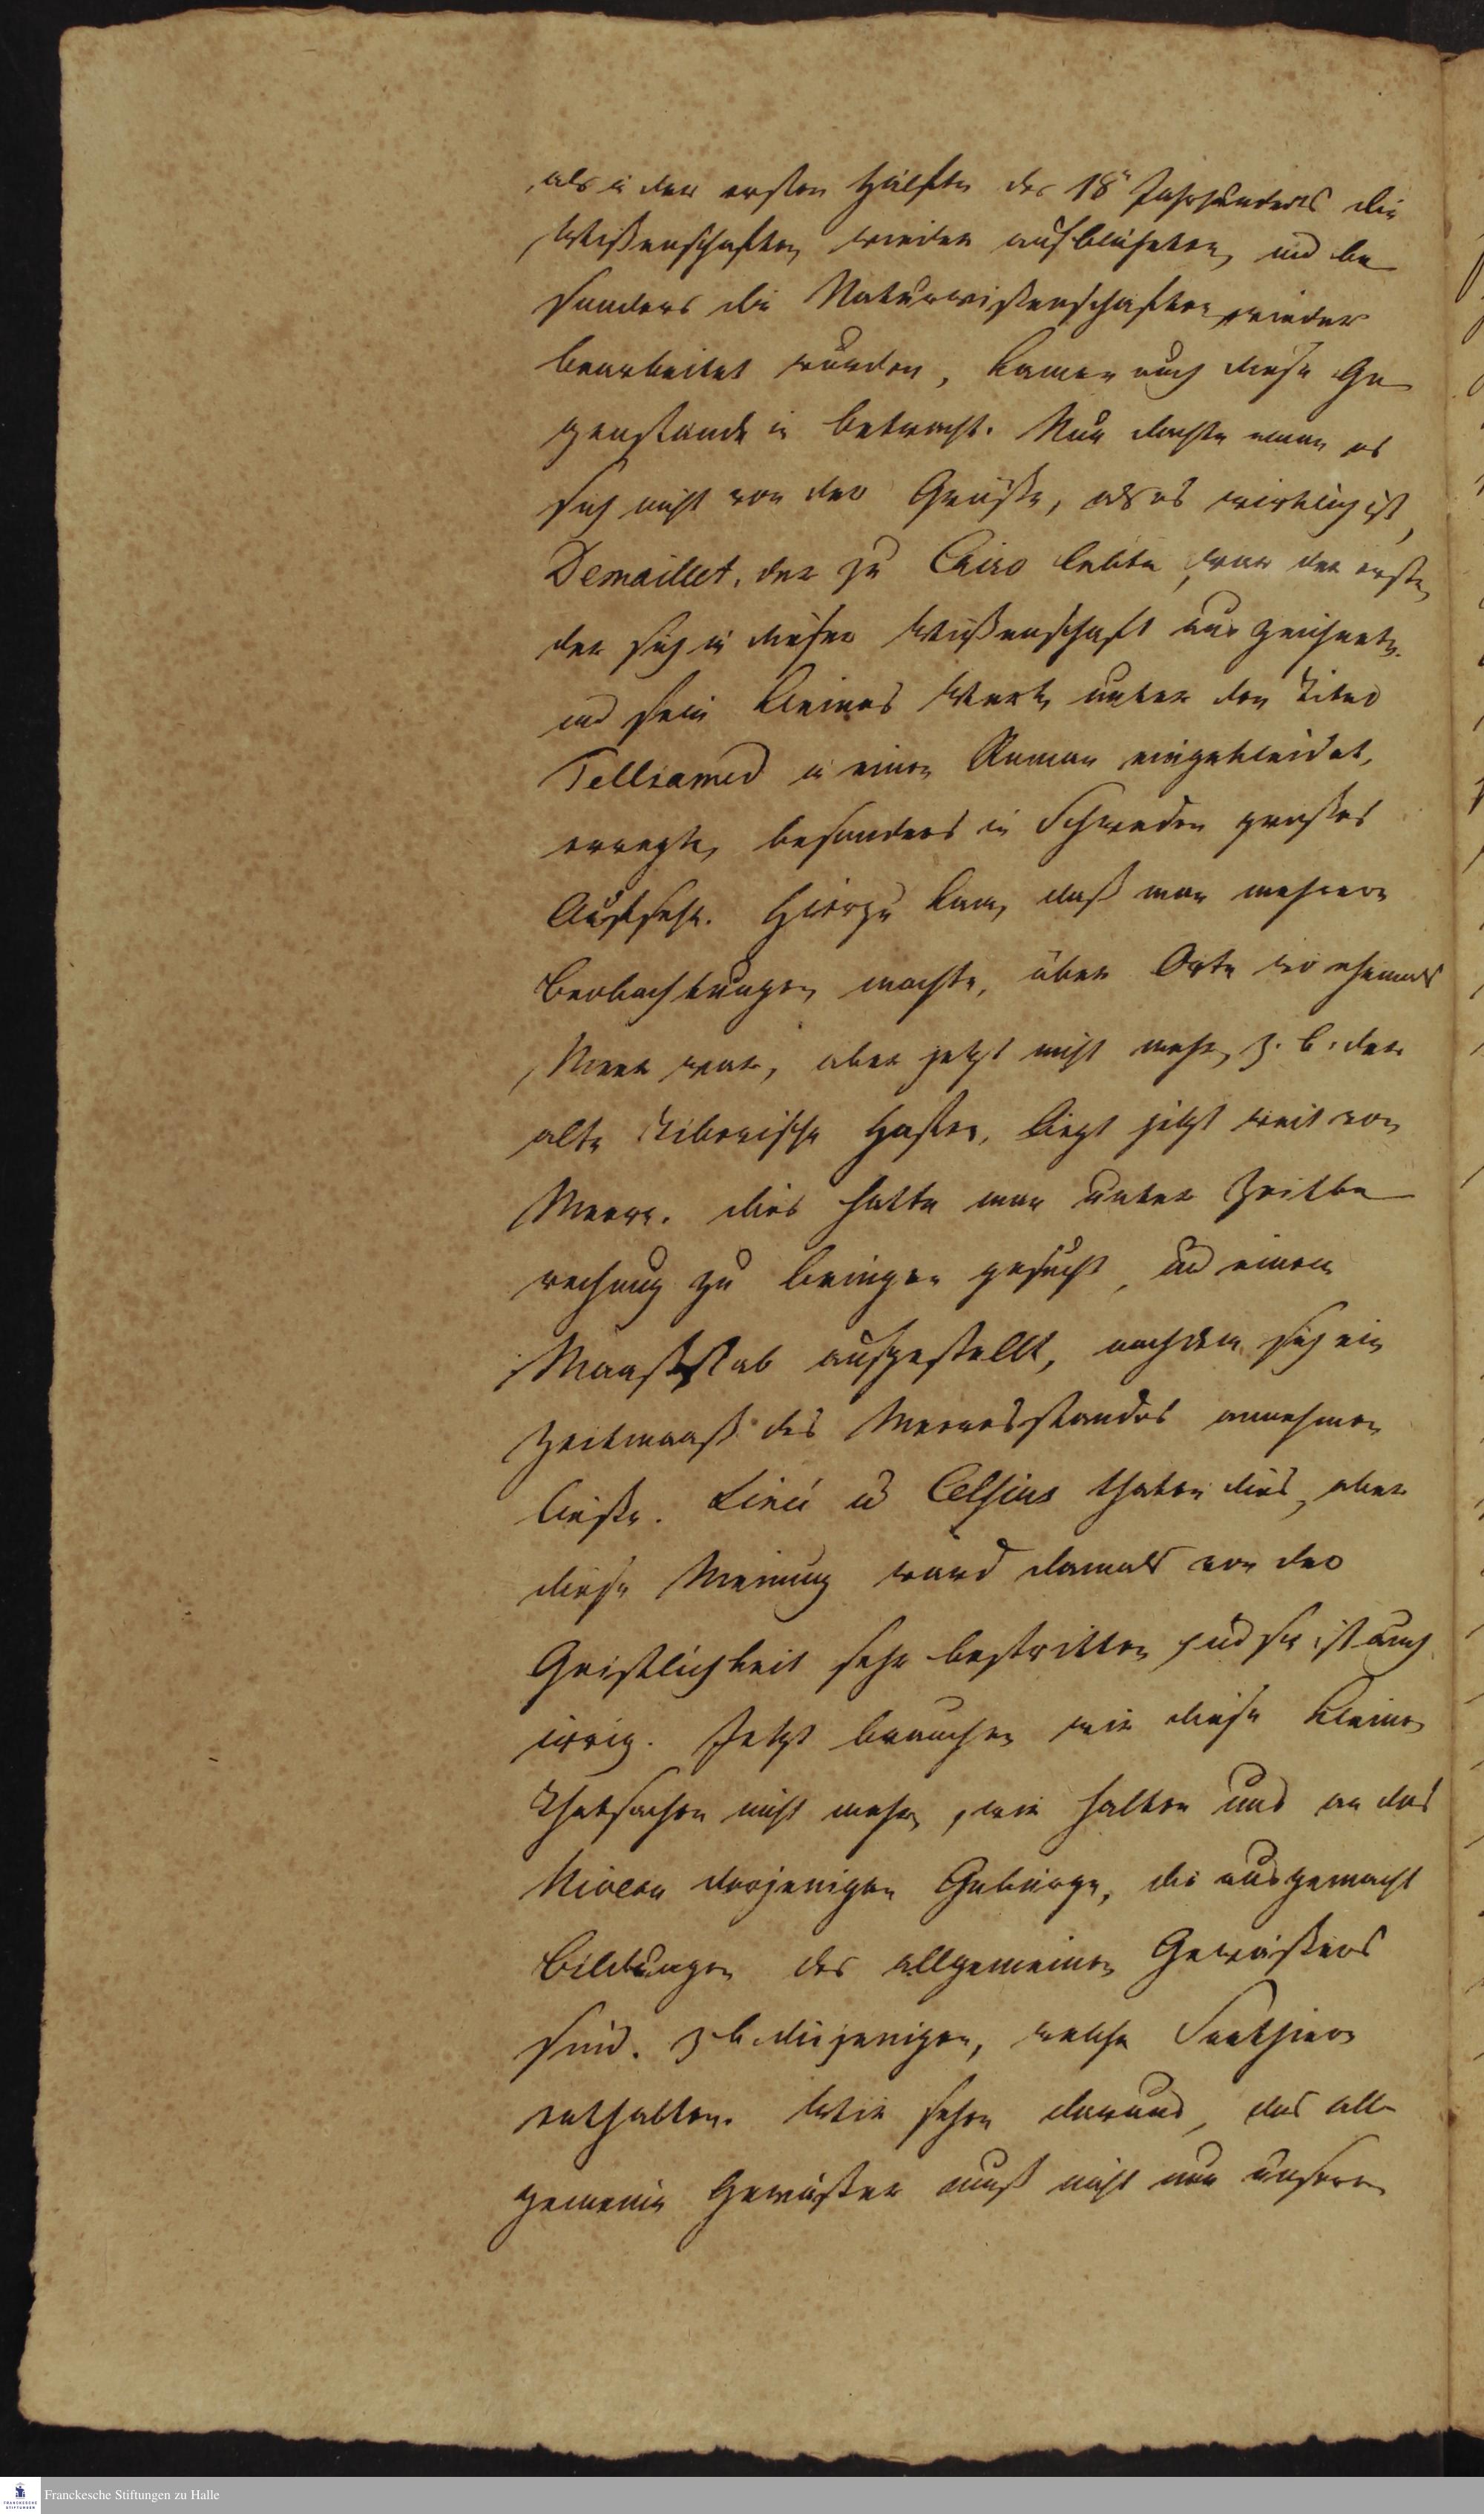 als in der ersten Hälfte des 18n Jahrhunderts die
Wißenschaften wieder aufblüheten, und be
sonders die Naturwißenschaften wieder
bearbeitet wurden, kamen auch diese Ge
genstände in Betracht. Nur dachte man es
sich nicht von der Größe, als es wirklich ist,
Demaillet, der zu Cairo lebte, war der erste,
der sich in dieser Wißenschaft auszeichnete.
und sein kleines Werk, unter den Titel
Telliamed in einen Roman eingekleidet,
erregte, besonders in Schweden großes
Aufsehn. Hierzu kam, daß man mehrere
Beobachtungen machte, über Orte wo ehemals
Meer war, aber jetzt nicht mehr, z. b. der
alte Hafen, liegt jetzt weit von
Meere. dies hatte man unter Zeitbe
rechnung zu bringen gesucht, und einen
Maaßstab aufgestellt, nachdem sich ein
Zeitmaaß des Meeresstandes annehmen
ließe. Liné u Celsius thaten dies, aber
diese Meinung ward damals von der
Geistlichkeit sehr bestritten, und sie ist auch
irrig. Jetzt brauchen wir diese kleinen
Thatsachen nicht mehr, wir halten uns an das
Niveau derjenigen Gebürge, die ausgemacht
Bildungen des allgemeinen Gewäßers
sind. z b. diejenigen, welche Seethiere
enthalten. Wir sehen daraus, das all
gemeine Gewäßer muß nicht nur unsern
Franckesche Stiftungen zu Halle